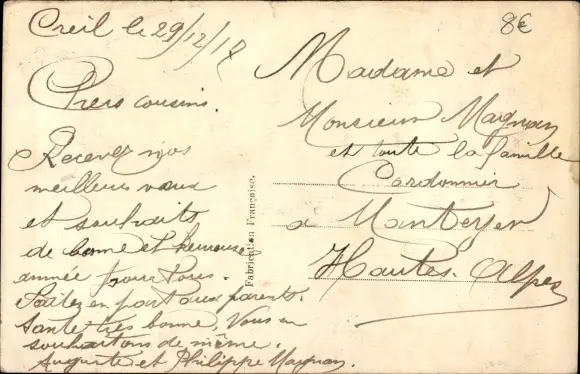 Creil le 29/12/18
8€
Chers cousins.
Recevez nos
meilleurs vœux
et souhaits
de bonne et heureuse
année pour tous.
Faites en part aux parents.
Santé très bonne, Vous en
souhaitons de même.
Auguste et Philippe Magnan.
Fabrication Française.
Madame et
Monsieur Magnan
et toute la famille
Cordonnier
a Manteyer
Hautes-Alpes